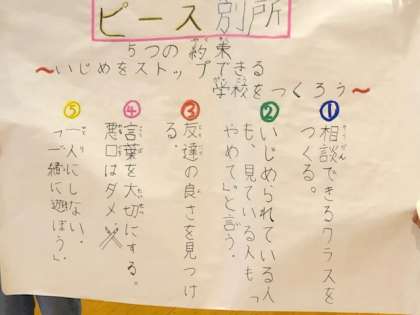 ピース別所
5つの約束
〜いじめをストップできる
学校をつくろう〜
①相談できるクラスを
つくる。
②いじめられている人
も、見ている人も「
やめて」と言う。
③友達の良さを見つけ
る。
④言葉を大切にする。
悪口はダメ
⑤一人にしない。
「一緒に遊ぼう」